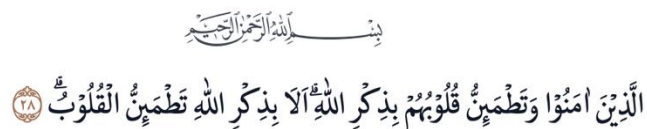 بِسْمِ اللّٰهِ الرَّحْمٰنِ الرَّحِيْمِ
الَّذِيْنَ اٰمَنُوْا وَتَطْمَىِٕنُّ قُلُوْبُهُمْ بِذِكْرِ اللّٰهِ ۗ اَلَا بِذِكْرِ اللّٰهِ تَطْمَىِٕنُّ الْقُلُوْبُ ۗ ٢٨